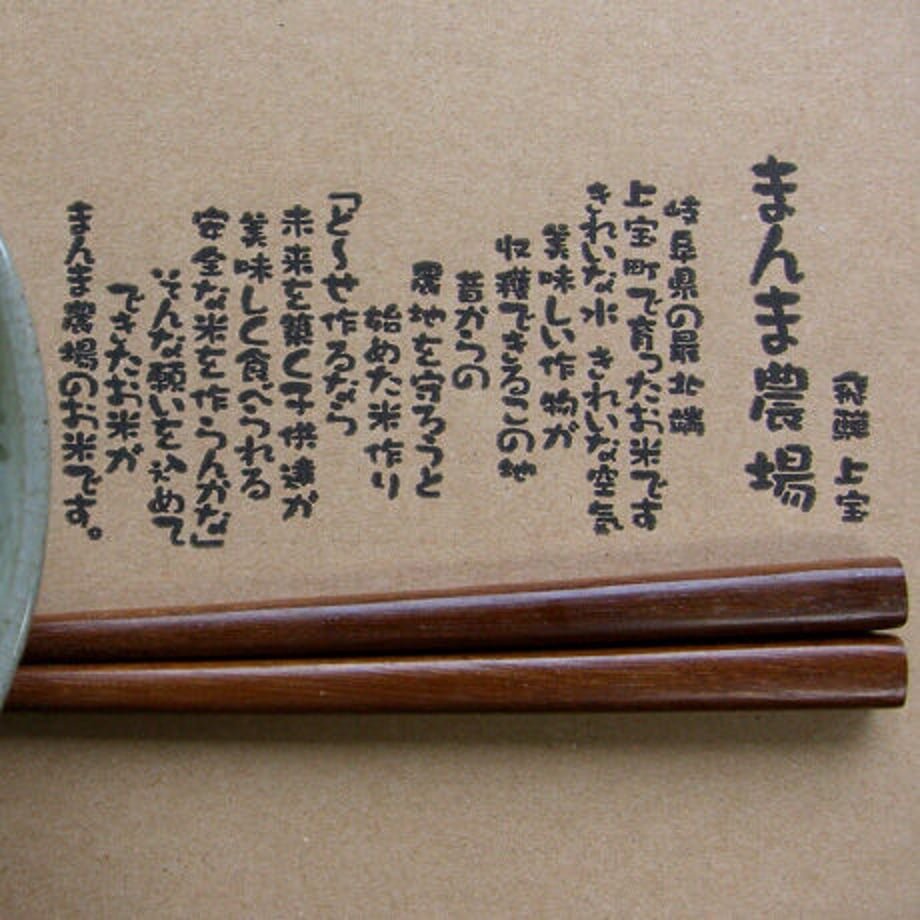 飛騨 上宝
まんま農場
岐阜県の最北端
上宝町で育ったお米です
きれいな水 きれいな空気
美味しい作物が
収穫できるこの地
昔からの
農地を守ろうと
始めた米作り
「ど〜せ作るなら
未来を築く子供達が
美味しく食べられる
安全な米を作らんかな」
そんな願いを込めて
できたお米が
まんま農場のお米です。